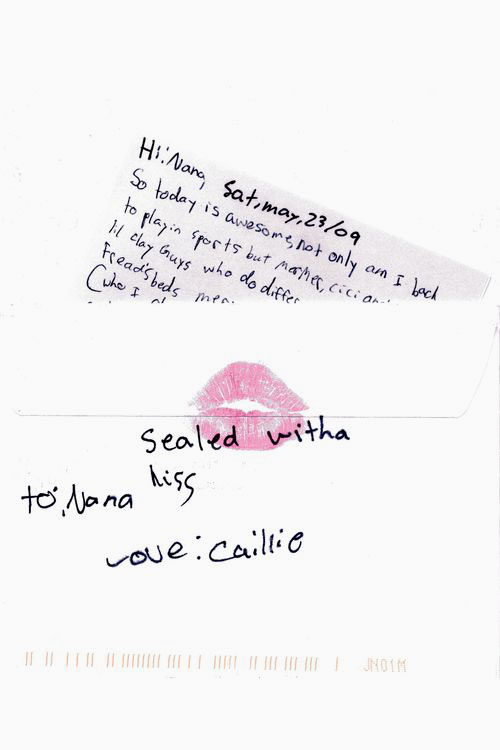 Hi: Nana, Sat, may, 23/09
So today is awesome, not only am I back
to playin sports but mother, cici an
lil clay Guys who do differe
Fread's beds mer
(who I
Sealed witha
kiss
to: Nana
Love: Caillie
JN01M